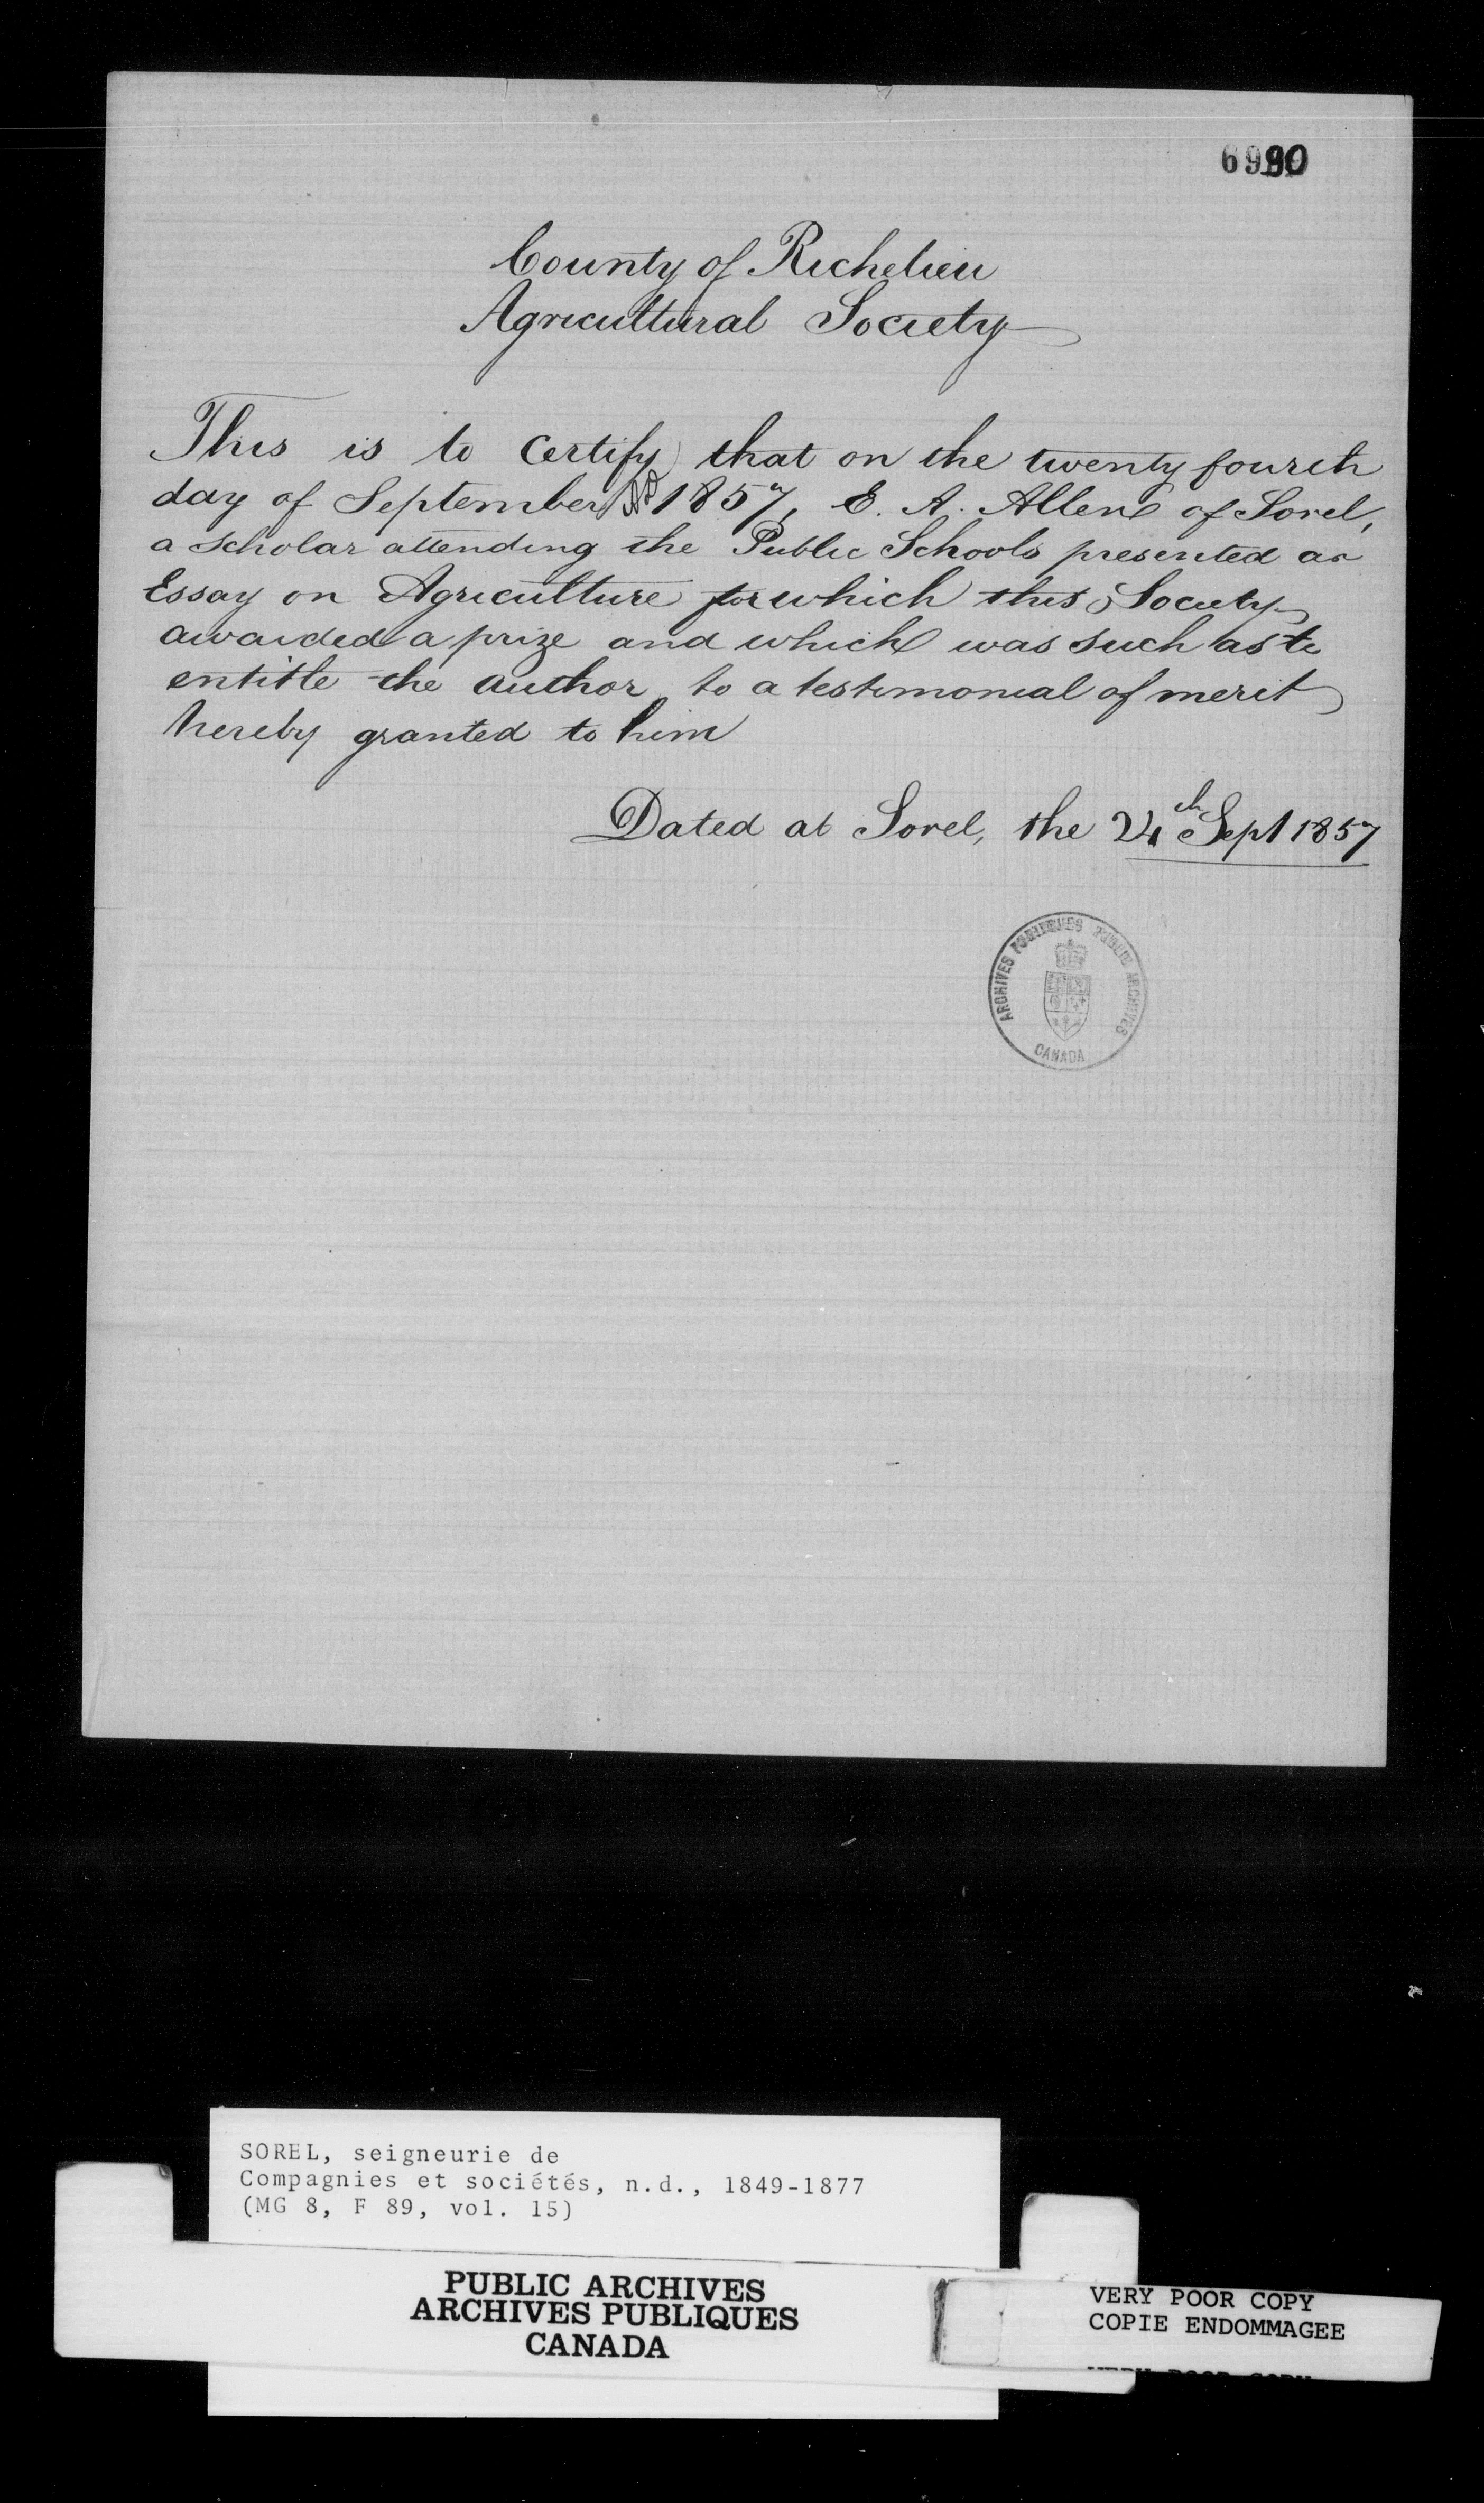 6990
County of Richelieu
Agricultural Society
This is to Certify that on the twenty fourth
day of September 1857, E. A. Allen of Sorel,
a scholar attending the Public Schools presented an
Essay on Agriculture for which this Society
awarded a prize and which was such as to
entitle the author to a testimonial of merit
hereby granted to him
Dated at Sorel, the 24th Sept 1857
ARCHIVES PUBLIQUES PUBLIC ARCHIVES
CANADA
SOREL, seigneurie de
Compagnies et sociétés, n.d., 1849-1877
(MG 8, F 89, vol. 15)
PUBLIC ARCHIVES
ARCHIVES PUBLIQUES
CANADA
VERY POOR COPY
COPIE ENDOMMAGEE